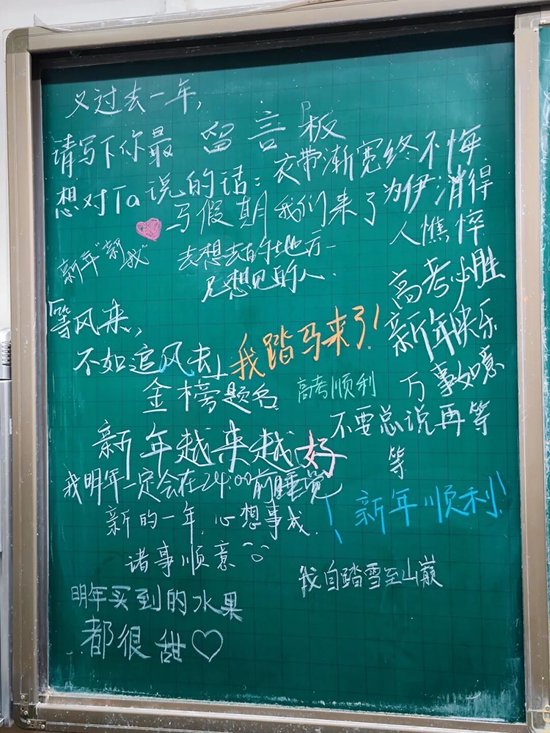 又过去一年,
请写下你最
想对Ta说的话:
留言板
衣带渐宽终不悔
为伊消得
人憔悴
写假期 我们来了
去想去的地方
见想见的人.
新年"新"我"
高考必胜
等风来,
不如追风去
我踏马来了!
新年快乐
金榜题名
高考顺利
万事如意
新年越来越好
不要总说再等
等
我明年一定会在24:00前睡觉
新的一年,心想事成.
新年顺利!
诸事顺意
我自踏雪至山巅
明年买到的水果
都很甜♡